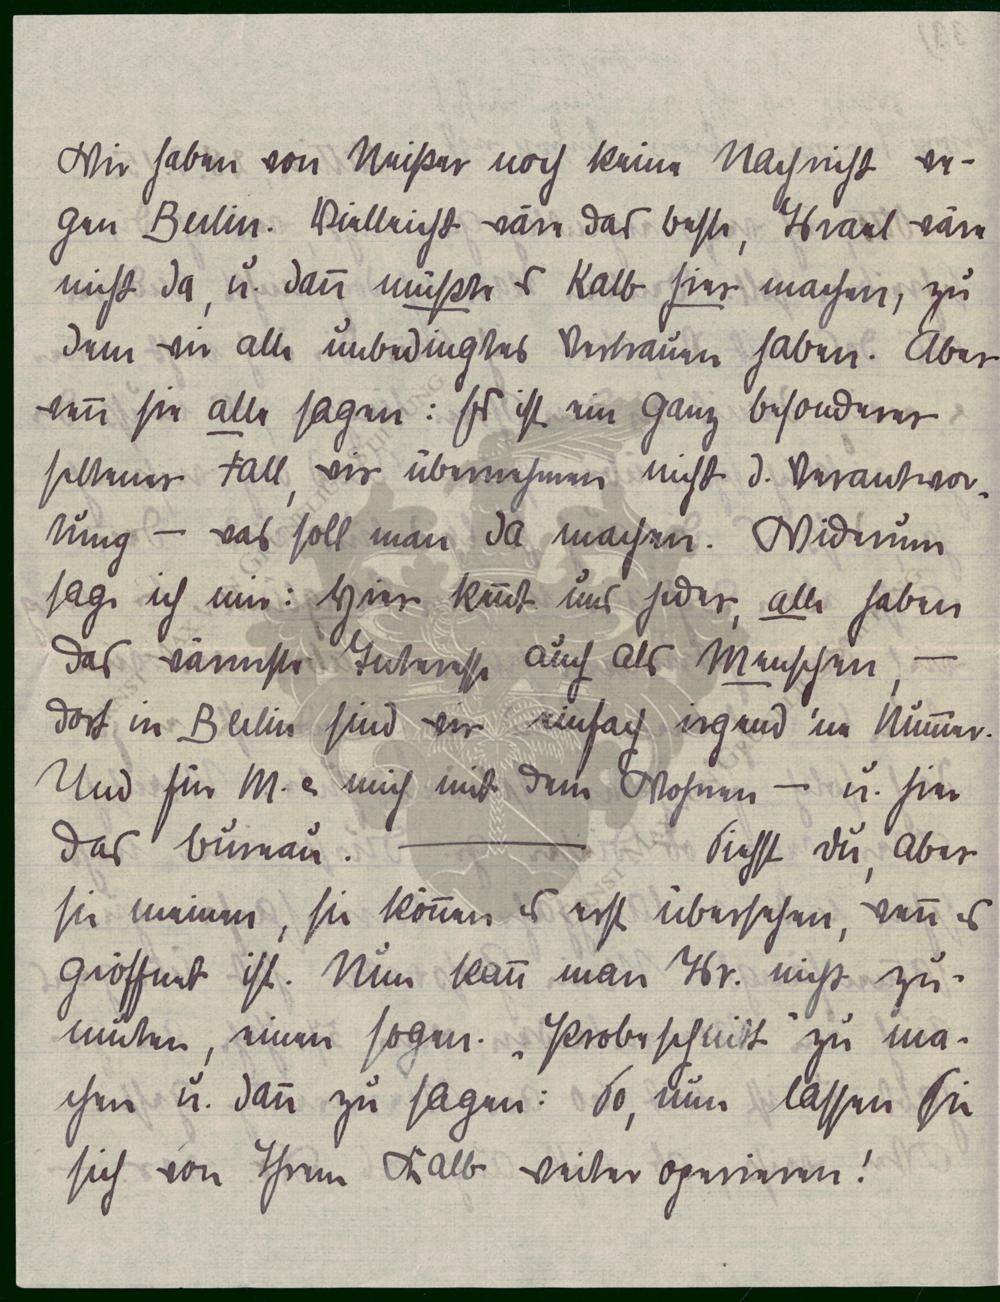 Wir haben von Meißner noch keine Nachricht we-
gen Berlin. Vielleicht wäre das beste, Israel wäre
nicht da, u. dañ müßte es Kalb hier machen, zu
dem wir alle unbedingtes Vertrauen haben. Aber
weñ sie alle sagen: Es ist ein ganz besonderer
seltener Fall, wir übernehmen nicht d. Verantwor-
tung — was soll man da machen. Widerum
sage ich mir: Hier keñt uns jeder, alle haben
das wärmste Interesse auch als Menschen, —
dort in Berlin sind wir einfach irgend 'ne Num̄er.
Und für M. & mich mit dem Wohnen — u. hier
das bureau. — Siehst du, aber
sie meinen, sie köñen es erst übersehen, weñ es
geöffnet ist. Nun kañ man Isr. nicht zu-
muten, einen sogen. „Probeschnitt" zu ma-
chen u. dañ zu sagen: So, nun lassen Sie
sich von Ihrem Kalb weiter operieren!